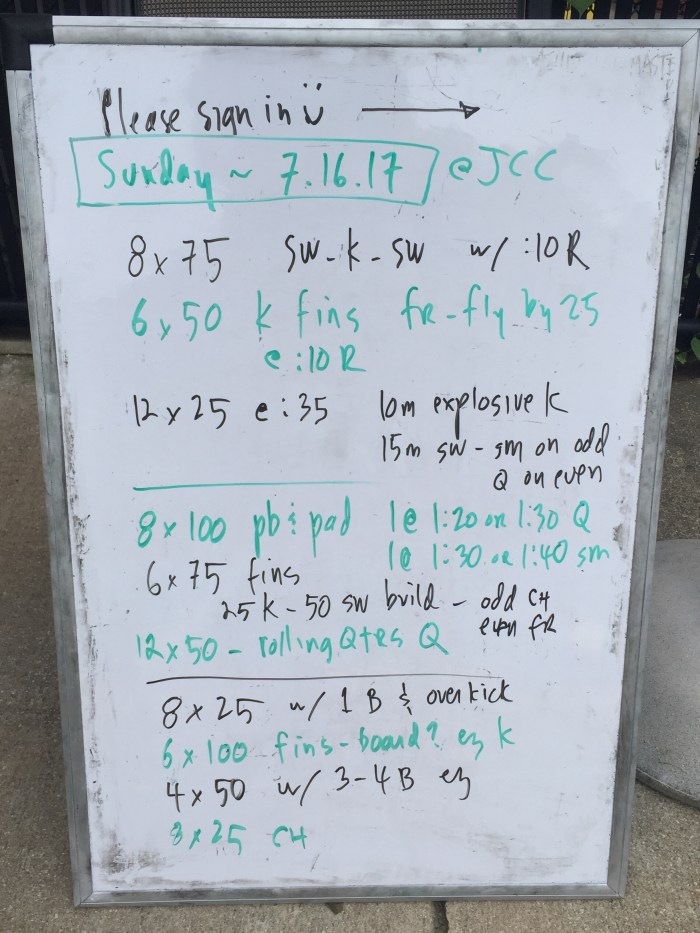 Please sign in ü
Sunday ~ 7.16.17 @JCC
8 x 75 sw-k-sw w/ :10 R
6 x 50 k fins fr-fly by 25
@ :10 R
12 x 25 @ :35 10m explosive k
15m sw - sm on odd
Q on even
8 x 100 pb & pad 1@ 1:20 or 1:30 Q
1@ 1:30 or 1:40 sm
6 x 75 fins
25 k - 50 sw build - odd CH
even fR
12 x 50 - rolling Qtes Q
8 x 25 w/ 1 B & overkick
6 x 100 fins - board? ez k
4 x 50 w/ 3-4 B ez
8 x 25 CH